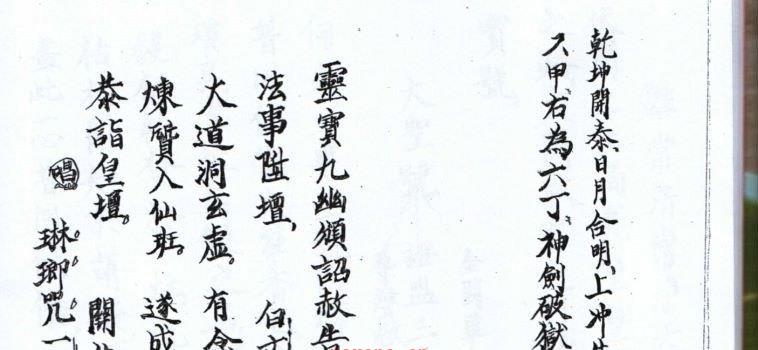 乾坤開泰、日月合明、上冲
六甲、右為六丁、神劍破獄
靈寶九幽頒詔赦告
法事陞壇，　　白
大道洞玄虛。有念
煉質入仙班。遂成
恭詣皇壇。　　開
唱　琳瑯咒一